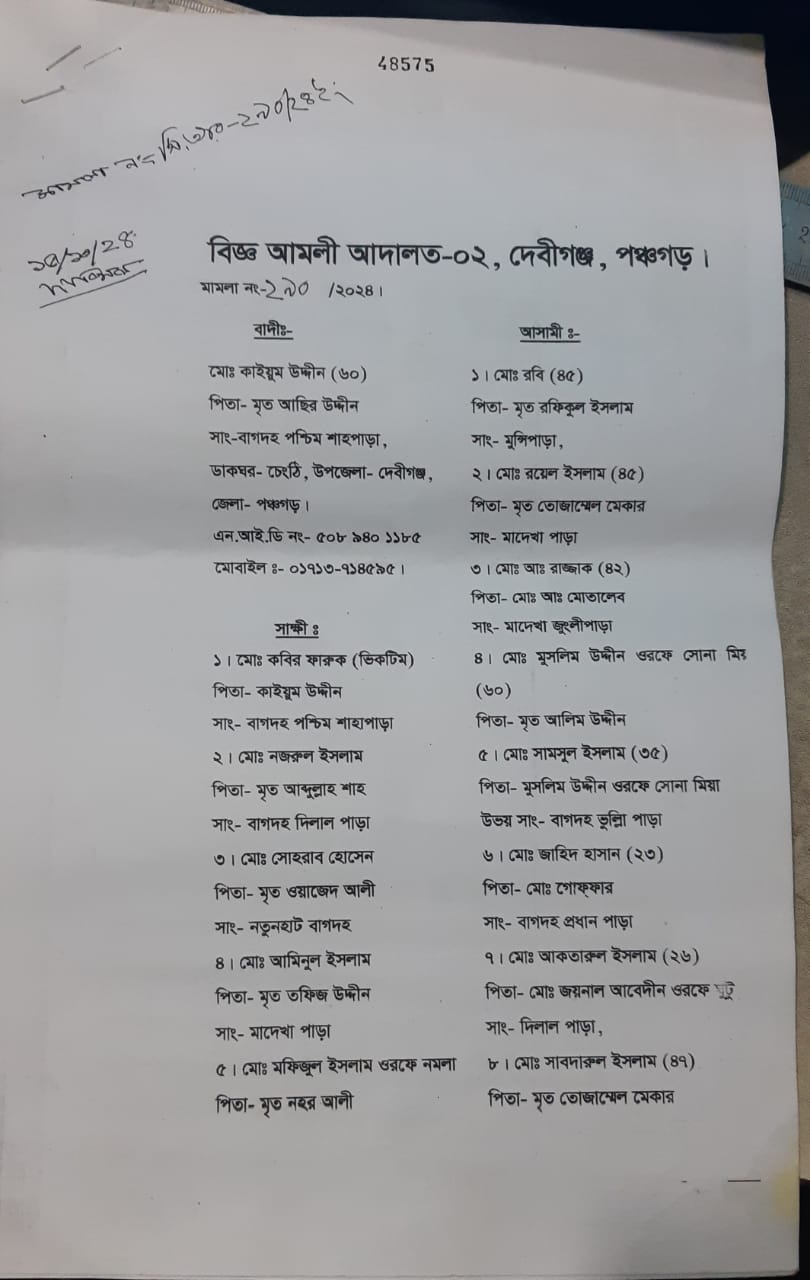 48575
মামলা নং- সি,আর-২৯০/২৪ইং
বিজ্ঞ আমলী আদালত-০২, দেবীগঞ্জ, পঞ্চগড়।
মামলা নং-২৯০ /২০২৪।
বাদীঃ-
মোঃ কাইয়ুম উদ্দীন (৬০)
পিতা- মৃত আছির উদ্দীন
সাং-বাগদহ পশ্চিম শাহপাড়া,
ডাকঘর- চেংঠি, উপজেলা- দেবীগঞ্জ,
জেলা- পঞ্চগড়।
এন.আই.ডি নং- ৫০৮ ৯৪০ ১১৮৫
মোবাইল ঃ- ০১৭১৩-৭১৪৫৯৫।
সাক্ষী ঃ
১। মোঃ কবির ফারুক (ভিকটিম)
পিতা- কাইয়ুম উদ্দীন
সাং- বাগদহ পশ্চিম শাহাপাড়া
২। মোঃ নজরুল ইসলাম
পিতা- মৃত আব্দুল্লাহ শাহ
সাং- বাগদহ দিলাল পাড়া
৩। মোঃ সোহরাব হোসেন
পিতা- মৃত ওয়াজেদ আলী
সাং- নতুনহাট বাগদহ
৪। মোঃ আমিনুল ইসলাম
পিতা- মৃত তফিজ উদ্দীন
সাং- মাদেখা পাড়া
৫। মোঃ মফিজুল ইসলাম ওরফে নমলা
পিতা- মৃত নহর আলী
আসামী ঃ-
১। মোঃ রবি (৪৫)
পিতা- মৃত রফিকুল ইসলাম
সাং- মুন্সিপাড়া,
২। মোঃ রয়েল ইসলাম (৪৫)
পিতা- মৃত তোজাম্মেল মেকার
সাং- মাদেখা পাড়া
৩। মোঃ আঃ রাজ্জাক (৪২)
পিতা- মোঃ আঃ মোতালেব
সাং- মাদেখা জুংলীপাড়া
৪। মোঃ মুসলিম উদ্দীন ওরফে সোনা মিয়
(৬০)
পিতা- মৃত আলিম উদ্দীন
৫। মোঃ সামসুল ইসলাম (৩৫)
পিতা- মুসলিম উদ্দীন ওরফে সোনা মিয়া
উভয় সাং- বাগদহ ডুল্লি পাড়া
৬। মোঃ জাহিদ হাসান (২৩)
পিতা- মোঃ গোফ্ফার
সাং- বাগদহ প্রধান পাড়া
৭। মোঃ আকতারুল ইসলাম (২৬)
পিতা- মোঃ জয়নাল আবেদীন ওরফে
সাং- দিলাল পাড়া,
৮। মোঃ সাবদারুল ইসলাম (৪৭)
পিতা- মৃত তোজাম্মেল মেকার